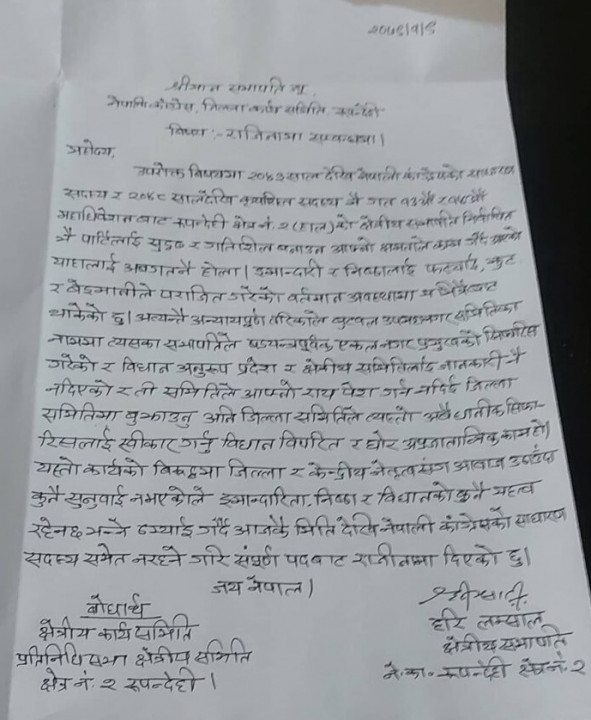 २०७९/१/९
श्रीमान सभापति ज्यू
नेपाली कांग्रेस, जिल्ला कार्य समिति, रूपन्देही
विषय :- राजिनामा सम्बन्धमा।
महोदय,
उपरोक्त विषयमा २०४३ साल देखि नेपाली कांग्रेसको साधारण
सदस्य र २०४८ सालदेखि क्रियाशिल सदस्य भै गत १३औं र १४औं
महाधिवेशन बाट रूपन्देही क्षेत्र नं. २ (हाल) को क्षेत्रीय सभापति निर्वाचित
भै पार्टिलाई सुदृढ र गतिशिल बनाउन आफ्नो
यहालाई अवगतनै होला। इमान्दारी र निष्ठालाई फटयाई, झुट
र बेइमानीले पराजित गरेको वर्तमान अवस्थामा म भित्रैबाट
थाकेको छु। अत्यन्तै अन्यायपूर्ण तरिकाले बुटवल उपमहानगर समितिका
नाममा त्यसका सभापतिले षडयन्त्रपूर्वक एकल नगर प्रमुखको सिफारिस
गरेको र विधान अनुरूप प्रदेश र क्षेत्रीय समितिलाई जानकारी नै
नदिएको र ती समितिले आफ्नो राय पेश गर्न नदिई जिल्ला
समितिमा बुझाउनु अनि जिल्ला समितिले त्यस्तो अवैधानीक सिफा-
रिसलाई स्वीकार गर्नु विधान विपरित र घोर अप्रजातान्त्रिक काम हो।
यस्तो कार्यको बिरूद्धमा जिल्ला र केन्द्रीय नेतृत्व संग आवाज उठाउँदा
कुनै सुनुवाई नभएकोले इमान्दारिता, निष्ठा र विधानको कुनै महत्व
रहेनछ भन्ने ठम्याई गर्दै आजकै मिति देखि नेपाली कांग्रेसको साधारण
सदस्य समेत नरहने गरि संपूर्ण पदबाट राजीनामा दिएको छु।
जय नेपाल।
बोधार्थ
क्षेत्रीय कार्य समिति
प्रतिनिधि सभा क्षेत्रीय समिति
क्षेत्र नं. २ रूपन्देही।
हरि लम्साल
क्षेत्रीय सभापति
ने.का. रूपन्देही क्षेत्र नं. २